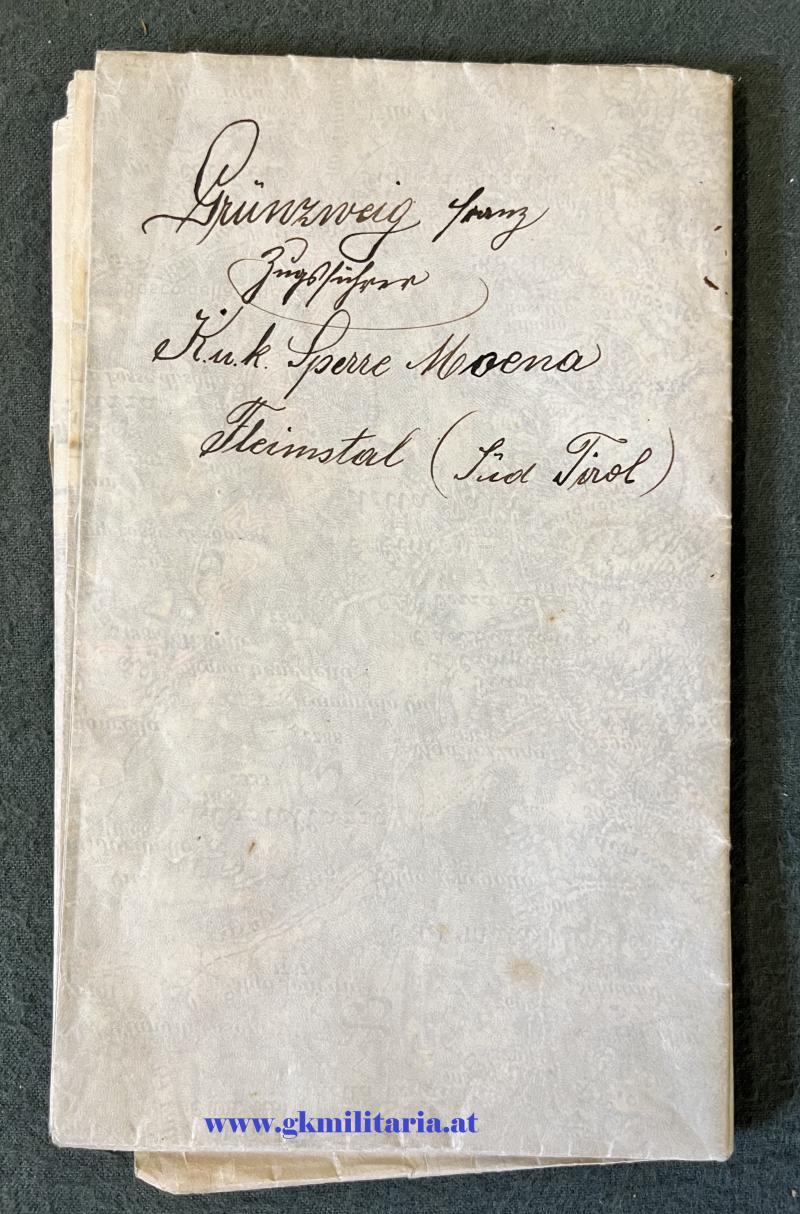 Grünzweig Franz
Zugsführer
K.u.k. Sperre Moena
Fleimstal (Süd Tirol)
www.gkmilitaria.at